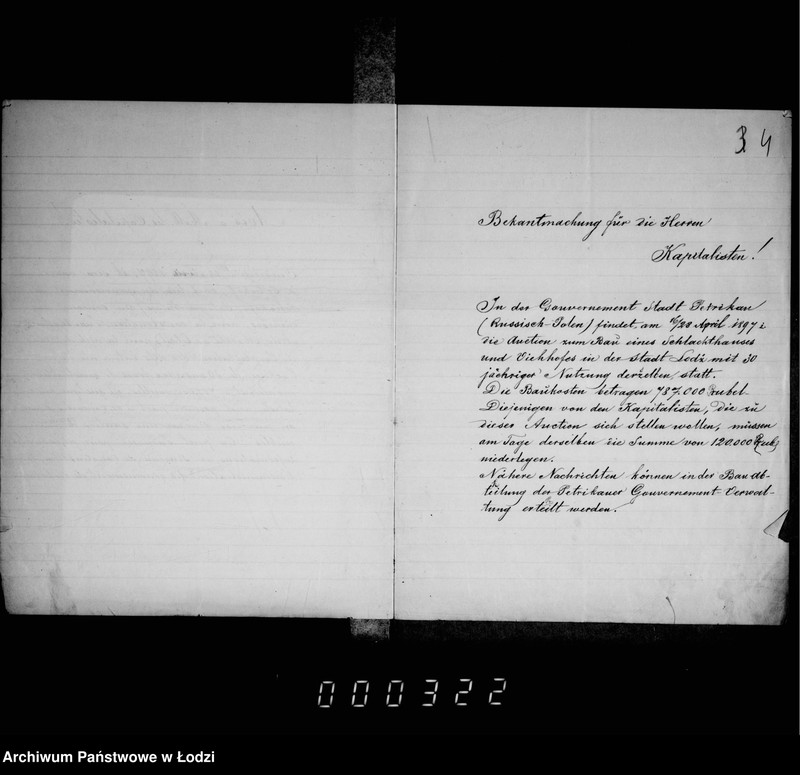 3. 4
Bekantmachung für die Herren
Kapitalisten!
In der Gouvernement Stadt Petrikau
(Russisch-Polen) findet am 16/28 April 1897 j.
die Auction zum Bau eines Schlachthauses
und Viehhofes in der Stadt Lodz mit 30
jäehriger Nutzung derzelben statt.
Die Baukosten betragen 787.000 Rubel.
Diejenigen von den Kapitalisten, die zu
dieser Auction sich stellen wollen, müssen
am Tage derselben die Summe von 120.000 Rub.
niederlegen.
Nähere Nachrichten können in der Bau Ab-
teilung der Petrikauer Gouvernement-Verwal-
tung erteilt werden.
000322
Archiwum Państwowe w Łodzi